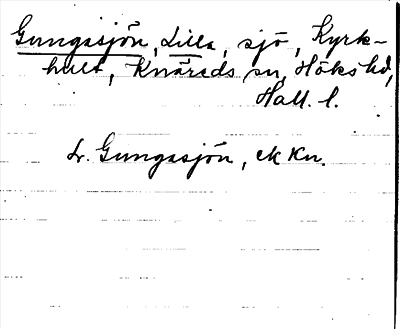 Gungasjön, Lilla, sjö, Kyrk-
hult, Knäreds sn, Höks hd,
Hall. l.
L. Gungasjön, ek Kn.